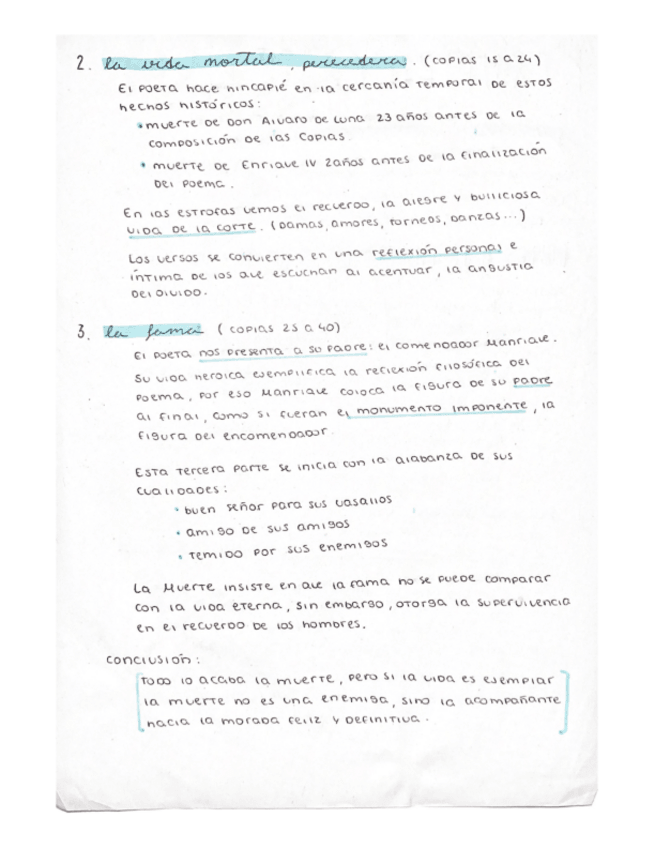 2. la vida mortal, perecedera. (copias 15 a 24)
El poeta hace hincapié en la cercanía temporal de estos
hechos históricos:
• muerte de Don Alvaro de Luna 23 años antes de la
composición de las copias
• muerte de Enrique IV 2 años antes de la finalización
del poema.
En las estrofas vemos el recuerdo, la alegre y bulliciosa
vida de la corte. (Damas, amores, torneos, danzas...)
Los versos se convierten en una reflexión personal e
íntima de los que escuchan al acentuar, la angustia
del olvido.
3. la fama (copias 25 a 40)
El poeta nos presenta a su padre: el comendador Manrique.
Su vida heroica ejemplifica la reflexión filosófica del
poema, por eso Manrique coloca la figura de su padre
al final, como si fueran el monumento imponente, la
figura del encomendador.
Esta tercera parte se inicia con la alabanza de sus
cualidades:
• buen señor para sus vasallos
• amigo de sus amigos
• temido por sus enemigos
La Muerte insiste en que la fama no se puede comparar
con la vida eterna, sin embargo, otorga la supervivencia
en el recuerdo de los hombres.
Conclusión:
Todo lo acaba la muerte, pero si la vida es ejemplar
la muerte no es una enemiga, sino la acompañante
hacia la morada feliz y definitiva.